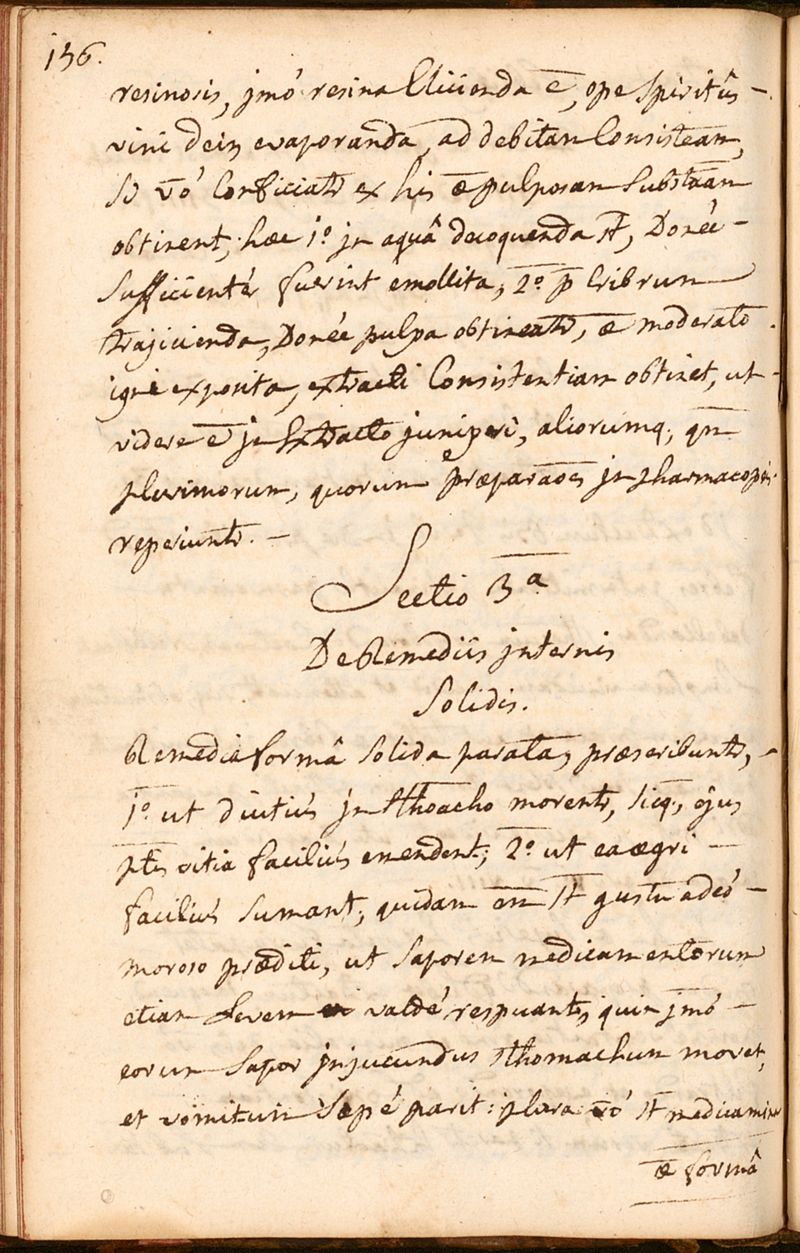 136.
resinosis, jmó resina Eliienda ē, ope Spiritûs –
vini dein evaporanda, ad debitam Consisteām,
Si vō Conficiatr ex his æ pulposam Substāām
obtinent; hæc 1.º jn aquâ decoquenda st, Donéc –
Sufficientér fuerint emollita, 2.º p̄ Cribrum
trajicienda, Donéc pulpa obtineatr, æ moderato
igni exposita, extracti Consistentiam obtinet, ut –
videre ē jn Extracto juniperi, aliorumq; qm̄
plurimorum, quorum præparaōes jn pharmacopæis
reperiuntr. –
Sectio 3.ª
De Remediis jnternis
Solidis.
Remedia formâ Solida parata, præscribuntr, –
1.º ut diutiús jn Sthoacho morentr, Sicq; ejus
ptis vitia faciliús emendent; 2.º ut ea ægri –
faciliús Sumant; quidam em̄ st gustu adeó –
moroso præditi, ut Saporem medicamentorum
etiam levem valdé respuant, quin jmó –
eorum Sapor jnjucundus sthomachum movet,
et vomitum Sæpé parit: plura vō st medicamina
æ formâ